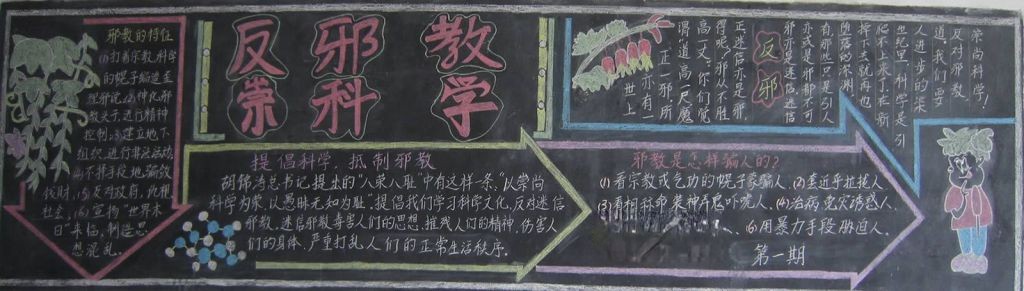 邪教的特征
(1)打着宗教、科学
的幌子编造歪
理邪说、(2)神化邪
教头子进行精神
控制、(3)建立地下
组织、进行非法活动、
(4)不择手段地骗敛
钱财、(5)反对政府、仇视
社会、(6)宣扬"世界末
日"来临,制造思
想混乱。
反邪教
崇科学
提倡科学、抵制邪教
胡锦涛总书记提出的"八荣八耻"中有这样一条,"以崇尚
科学为荣、以愚昧无知为耻",提倡我们学习科学文化、反对迷信
邪教、迷信邪教毒害人们的思想、摧残人们的精神、伤害人
们的身体、严重打乱人们的正常生活秩序。
崇尚科学!
反对邪教
道,我们要
人进步的渠
世纪里,科学是引
爬不上来了、在新
掉下去就再也
堕落的深渊、
有那些只是引人
亦或是邪都不可
邪亦是迷信、迷信
反邪
正迷信亦是邪、
得呢、邪从不胜
高一丈、你们觉
谓道高一尺,魔
正一邪、所
世上亦有一
邪教是怎样骗人的?
(1)着宗教或气功的幌子蒙骗人、(2)套近乎拉拢人
(3)看相、算命、装神弄鬼吓唬人、(4)治病免灾诱惑人、
人、(6)用暴力手段胁迫人。
第一期